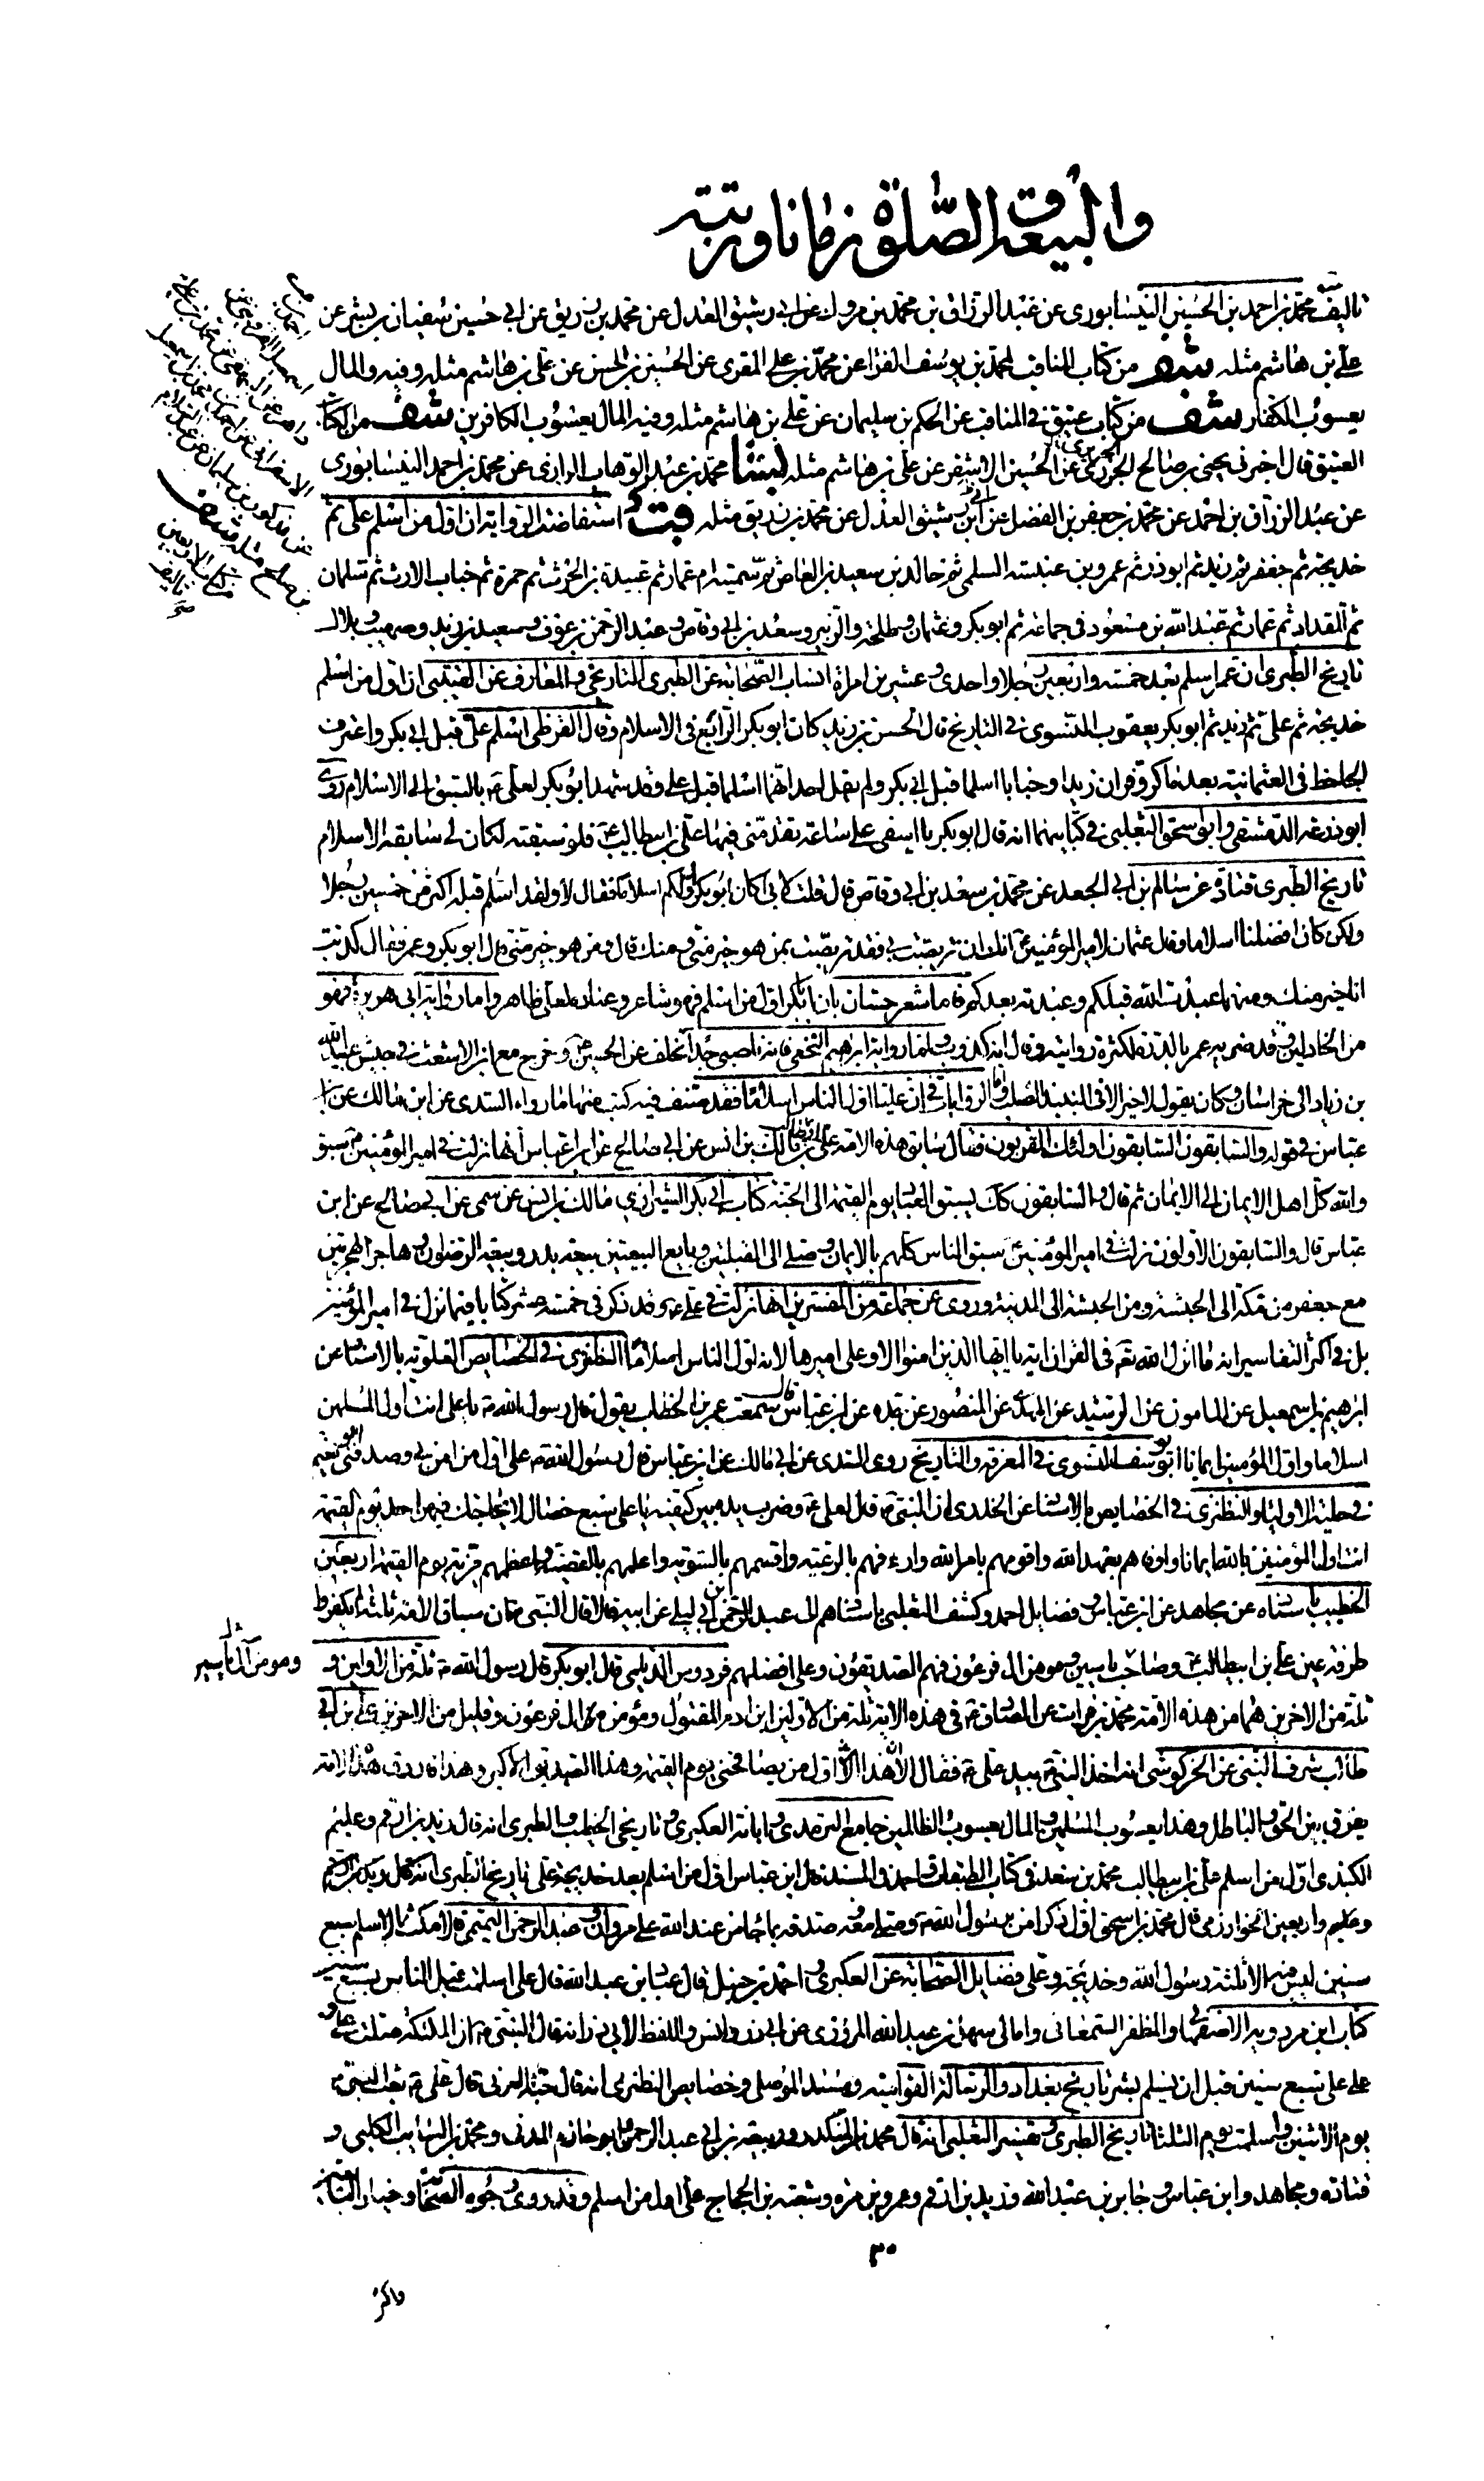 والبيعة والصلوة زمانا ورتبته
تاليف محمد بن احمد بن الحسين النيسابورى عن عبد الرزاق بن محمد بن مروك عن ابى رشيق العدل عن محمد بن رزيق عن ابى حسين سفيان بن بشر عن
على بن هاشم مثله شف من كتاب المناقب لمحمد بن يوسف الفراء عن محمد بن على المقرى عن الحسين بن الحسن عن على بن هاشم مثله وفيه والمال
يعسوب الكفار شف من كتاب عتيق فى المناقب عن الحكم بن سليمان عن على بن هاشم مثله وفيه المال يعسوب الكافرين شف من الكتاب
العتيق قال اخبرنى يحيى بن صالح عن الحسين الاشقر عن على بن هاشم مثله بشا محمد بن عبد الوهاب الرازى عن محمد بن احمد النيسابورى
عن عبد الرزاق بن احمد عن محمد بن جعفر بن الفضل عن ابن رشيق العدل عن محمد بن رزيق مثله قب استفاضت الرواية ان اول من اسلم على ثم
خديجة ثم جعفر ثم زيد ثم ابو ذر ثم عمرو بن عنبسة السلمى ثم خالد بن سعيد بن العاص ثم سمية ام عمار ثم عبيدة بن الحرث ثم حمزة ثم خباب الارث ثم سلمان
ثم المقداد ثم عمار ثم عبد الله بن مسعود فى جماعة ثم ابو بكر وعثمان وطلحة والزبير وسعد بن ابى وقاص وعبد الرحمن بن عوف وسعيد بن زيد وصهيب وبلال
تاريخ الطبرى ان عمر اسلم بعد خمسة واربعين رجلا واحدى وعشرين امراة انساب الصحابة عن الطبرى التاريخى والمعارف عن القتيبى ان اول من اسلم
خديجة ثم على ثم زيد ثم ابو بكر يعقوب النسوى فى التاريخ قال الحسن بن زيد كان ابو بكر الرابع فى الاسلام وقال القرظى اسلم على قبل ابى بكر واعترف
الجاحظ فى العثمانية بعد ما كر وفر ان زيدا وخبابا اسلما قبل ابى بكر ولم يقل احد انهما اسلما قبل على وقد شهد ابو بكر لعلى ع بالسبق الى الاسلام روى
ابو زرعة الدمشقى وابو اسحق الثعلبى فى كتابيهما انه قال ابو بكر يا اسفى على ساعة تقدمنى فيها على بن ابيطالب ع فلو سبقته لكان لى سابقة الاسلام
تاريخ الطبرى قتادة عن سالم بن ابى الجعد عن محمد بن سعد بن ابى وقاص قال قلت لابى اكان ابو بكر اولكم اسلاما فقال لا ولقد اسلم قبله اكثر من خمسين رجلا
ولكن كان افضلنا اسلاما وقال عثمان لامير المؤمنين ع انك ان تربصت بى فقد تربصت بمن هو خير منى ومنك قال ومن هو خير منى قال ابو بكر وعمر فقال كذبت
انا خير منك ومنهما عبدت الله قبلكم وعبدته بعدكم فاما شعر حسان بان ابا بكر اول من اسلم فهو شاعر وعناده لعلى ظاهر واما رواية ابى هريرة فهو
من الخاذلين وقد ضربه عمر بالدرة لكثرة روايته وقال انه كذوب واما رواية ابراهيم النخعى فانه ناصبى جدا تخلف عن الحسين ع وخرج مع ابن الاشعث فى جيش عبيد الله
بن زياد الى خراسان وكان يقول لا خير الا فى النبيذ الصلب واما الروايات فى ان عليا اول الناس اسلاما فقد صنف فيه كتب منها ما رواه السدى عن ابى مالك عن ابن
عباس فى قوله والسابقون السابقون اولئك المقربون فقال سابق هذه الامة على بن ابى طالب مالك بن انس عن ابى صالح عن ابن عباس انها نزلت فى امير المؤمنين ع سبق
والله كل اهل الايمان الى الايمان ثم قال والسابقون كذلك يسبق العباد يوم القيمة الى الجنة كتاب ابى بكر الشيرازى مالك بن انس عن سمى عن ابى صالح عن ابن
عباس قال والسابقون الاولون نزلت فى امير المؤمنين ع سبق الناس كلهم بالايمان وصلى الى القبلتين وبايع البيعتين بيعة بدر وبيعة الرضوان وهاجر الهجرتين
مع جعفر من مكة الى الحبشة ومن الحبشة الى المدينة وروى عن جماعة من المفسرين انها نزلت فى على ع وقد ذكر فى خمسة عشر كتابا فيما نزل فى امير المؤمنين
بل فى اكثر التفاسير انه ما انزل الله تعم فى القران اية يا ايها الذين امنوا الا وعلى اميرها لانه اول الناس اسلاما النطنزى فى الخصايص العلوية بالاسناد عن
ابرهيم بن اسمعيل عن المامون عن الرشيد عن المهدى عن المنصور عن جده عن ابن عباس قال سمعت عمر بن الخطاب يقول قال رسول الله ص يا على انت اول المسلمين
اسلاما واول المؤمنين ايمانا ابو يوسف النسوى فى المعرفة والتاريخ روى السدى عن ابى مالك عن ابن عباس قال رسول الله ص على اول من امن بى وصدقنى ابو نعيم
فى حلية الاولياء والنطنزى فى الخصايص بالاسناد عن الخدرى ان النبى ص قال لعلى ع وضرب يده بين كتفيه يا على سبع خصال لا يحاجك فيهن احد يوم القيمة
انت اول المؤمنين بالله ايمانا واوفاهم بعهد الله واقومهم بامر الله وارءفهم بالرعية واقسمهم بالسوية واعلمهم بالقضية واعظمهم مزية يوم القيمة اربعين
الخطيب باسناده عن مجاهد عن ابن عباس وفضايل احمد وكشف الثعلبى باسنادهم الى عبد الرحمن بن ابى ليلى عن ابيه قالا قال النبى ص ان سباق الامة ثلثة لم يكفروا
طرفة عين على بن ابيطالب ع وصاحب ياسين ومومن ال فرعون فهم الصديقون وعلى افضلهم فردوس الديلمى قال ابو بكر قال رسول الله ص ثلة من الاولين و
ثلة من الاخرين هما من هذه الامة محمد بن فرات عن الصادق ع فى هذه الاية ثلة من الاولين ابن ادم المقتول ومؤمن ال فرعون وقليل من الاخرين على بن ابى
طالب شرف النبى عن الخركوشى انه اخذ النبى ص بيد على ع فقال الا ان هذا اول من يصافحنى يوم القيمة وهذا الصديق الاكبر وهذا فاروق هذه الامة
يفرق بين الحق والباطل وهذا يعسوب المسلمين والمال يعسوب الظالمين جامع الترمدى وابانة العكبرى وتاريخى الخطيب والطبرى انه قال زيد بن ارقم وعليم
الكندى اول من اسلم على بن ابيطالب محمد بن سعد فى كتاب الطبقات واحمد فى المسند قال ابن عباس اول من اسلم بعد خديجة على تاريخ الطبرى انه قال زيد بن ارقم
وعليم واربعين الخوارزمى قال محمد بن اسحق اول ذكر امن برسول الله ص وصلى معه وصدقه بما جاء من عند الله على مروان وعبد الرحمن التميمى قالا مكث الاسلم سبع
سنين ليس فيه الا ثلثة رسول الله وخديجة وعلى فضايل الصحابة عن العكبرى واحمد بن حنبل قال عباد بن عبد الله قال على اسلمت قبل الناس بسبع سنين
كتاب ابن مردويه الاصفهانى والمظفر السمعانى وامالى سهل بن عبد الله المروزى عن ابى ذر وانس واللفظ لابى ذر انه قال النبى ص ان الملئكة صلت على و
على على سبع سنين قبل ان يسلم بشر تاريخ بغداد والرسالة القوامية ومسند الموصلى وخصايص النطنزى انه قال حبة العرنى قال على ع بعث النبى ص
يوم الاثنين واسلمت يوم الثلثا تاريخ الطبرى وتفسير الثعلبى انه قال محمد بن المنكدر وربيعة بن ابى عبد الرحمن وابو حازم المدنى ومحمد بن السايب الكلبى و
قتادة ومجاهد وابن عباس وجابر بن عبد الله وزيد بن ارقم وعمرو بن مرة وشعبة بن الحجاج على اول من اسلم وقد روى وجوه الصحابة وخيار التابعين
ومومن آل ياسين
٣٠
واكثر